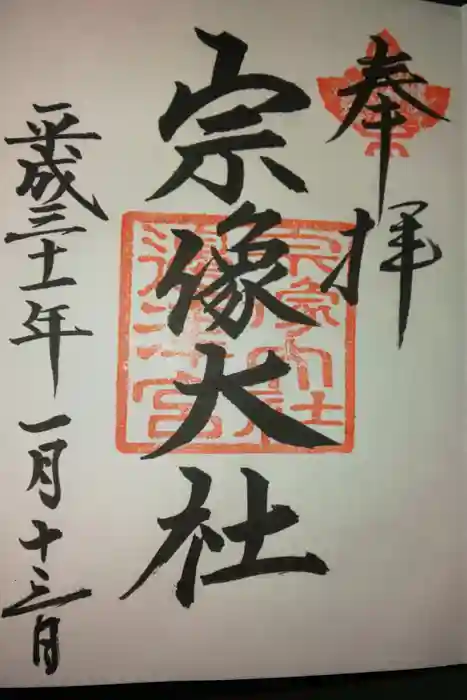 奉拝
宗像大社
平成三十一年一月十三日
宗像大社